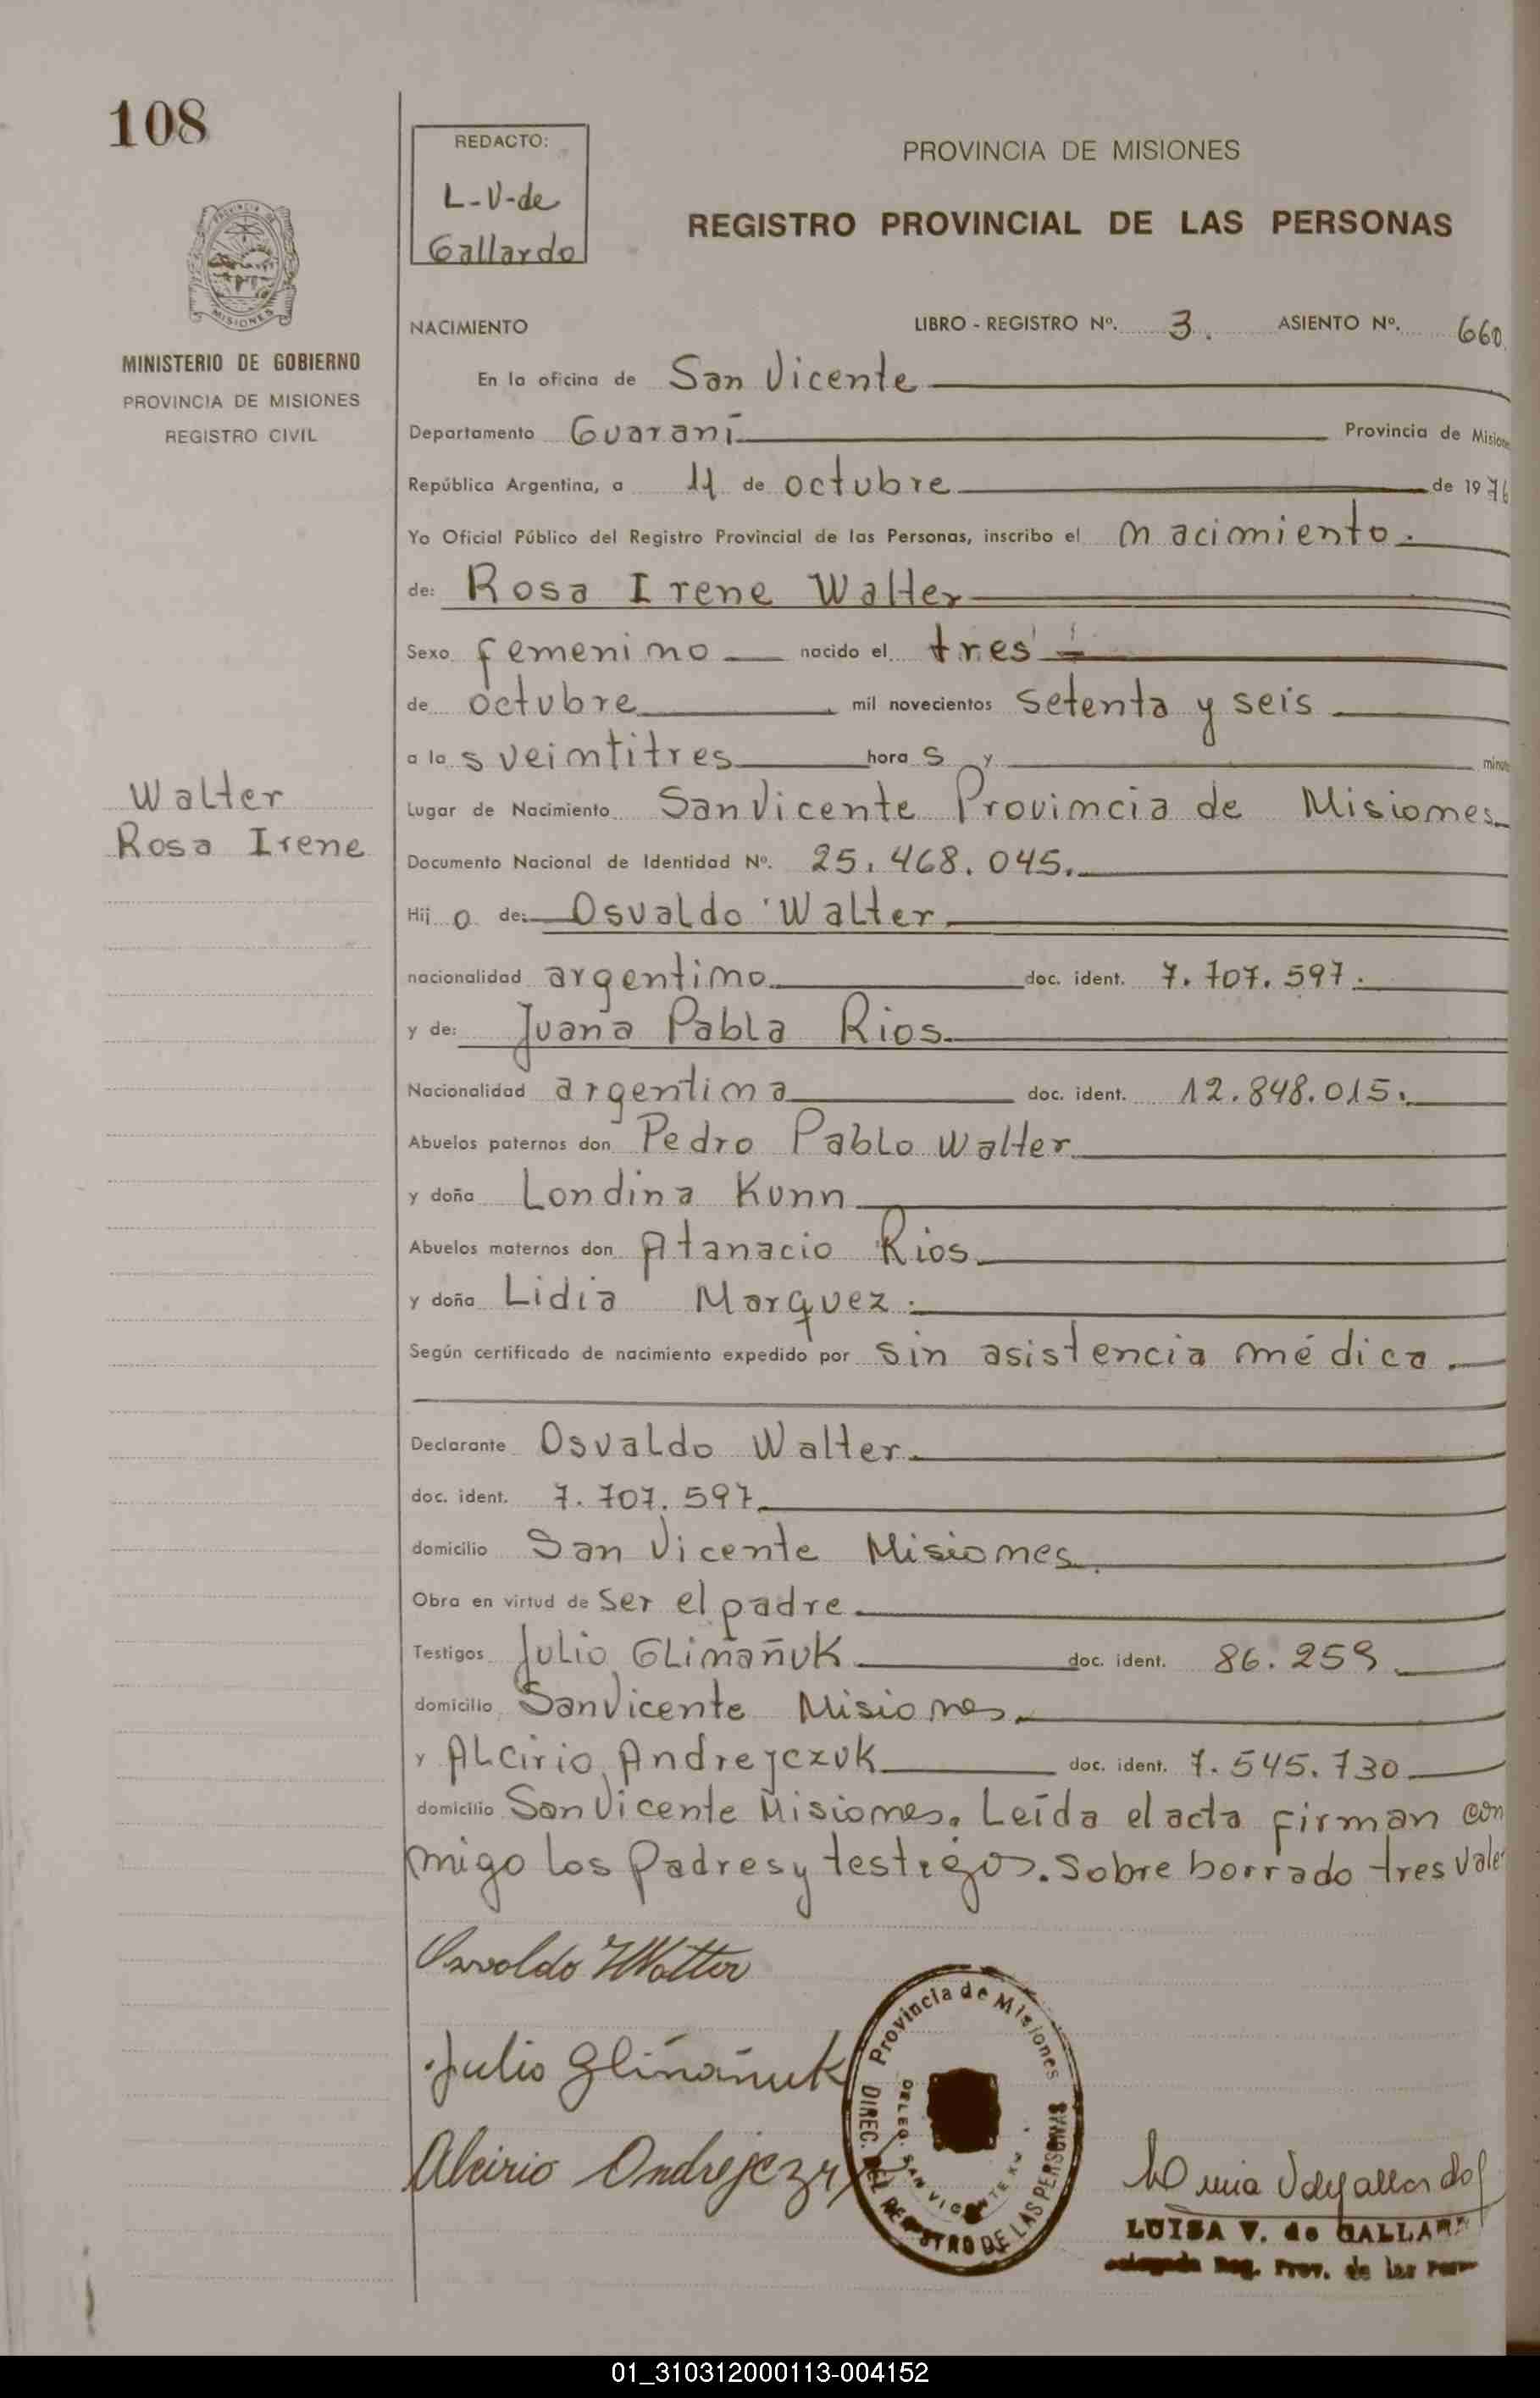 108
REDACTO:
L-V-de
Gallardo
PROVINCIA DE MISIONES
REGISTRO PROVINCIAL DE LAS PERSONAS
PROVINCIA DE
MISIONES
MINISTERIO DE GOBIERNO
PROVINCIA DE MISIONES
REGISTRO CIVIL
Walter
Rosa Irene
NACIMIENTO LIBRO - REGISTRO Nº. 3. ASIENTO Nº. 660.
En la oficina de San Vicente
Departamento Guaraní Provincia de Misiones
República Argentina, a 11 de octubre de 1976
Yo Oficial Público del Registro Provincial de las Personas, inscribo el nacimiento.
de: Rosa Irene Walter
Sexo femenino nacido el tres
de octubre mil novecientos setenta y seis
a las veintitres horas y minutos
Lugar de Nacimiento San Vicente Provincia de Misiones
Documento Nacional de Identidad Nº. 25.468.045.
Hijo de: Osvaldo Walter
nacionalidad argentino doc. ident. 7.707.597.
y de: Juana Pabla Rios.
Nacionalidad argentina doc. ident. 12.848.015.
Abuelos paternos don Pedro Pablo Walter
y doña Londina Kunn
Abuelos maternos don Atanacio Rios
y doña Lidia Marquez.
Según certificado de nacimiento expedido por sin asistencia médica.
Declarante Osvaldo Walter
doc. ident. 7.707.597
domicilio San Vicente Misiones.
Obra en virtud de ser el padre
Testigos Julio Gliñañuk doc. ident. 86.259
domicilio San Vicente Misiones
y Alcirio Andrejczuk doc. ident. 7.545.730
domicilio San Vicente Misiones. Leída el acta firman con
migo los Padres y testigos. Sobre borrado tres Vale
Osvaldo Walter
Julio Gliñañuk
Provincia de Misiones
DIREC. DEL REGISTRO DE LAS PERSONAS
DELEG. SAN VICENTE
Alcirio
LUISA V. de GALLARDO
Reg. Prov. de las Pers
01_310312000113-004152